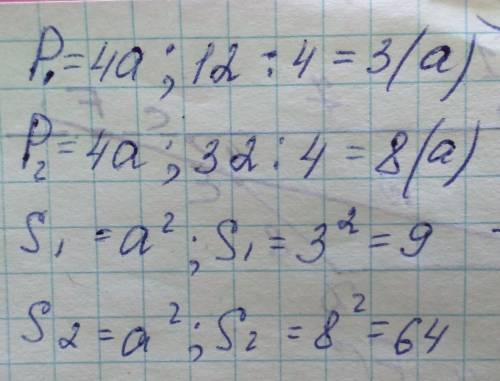 P₁=4a; 12:4=3(a)
P₂=4a; 32:4=8(a)
S₁=a²; S₁=3²=9
S₂=a²; S₂=8²=64